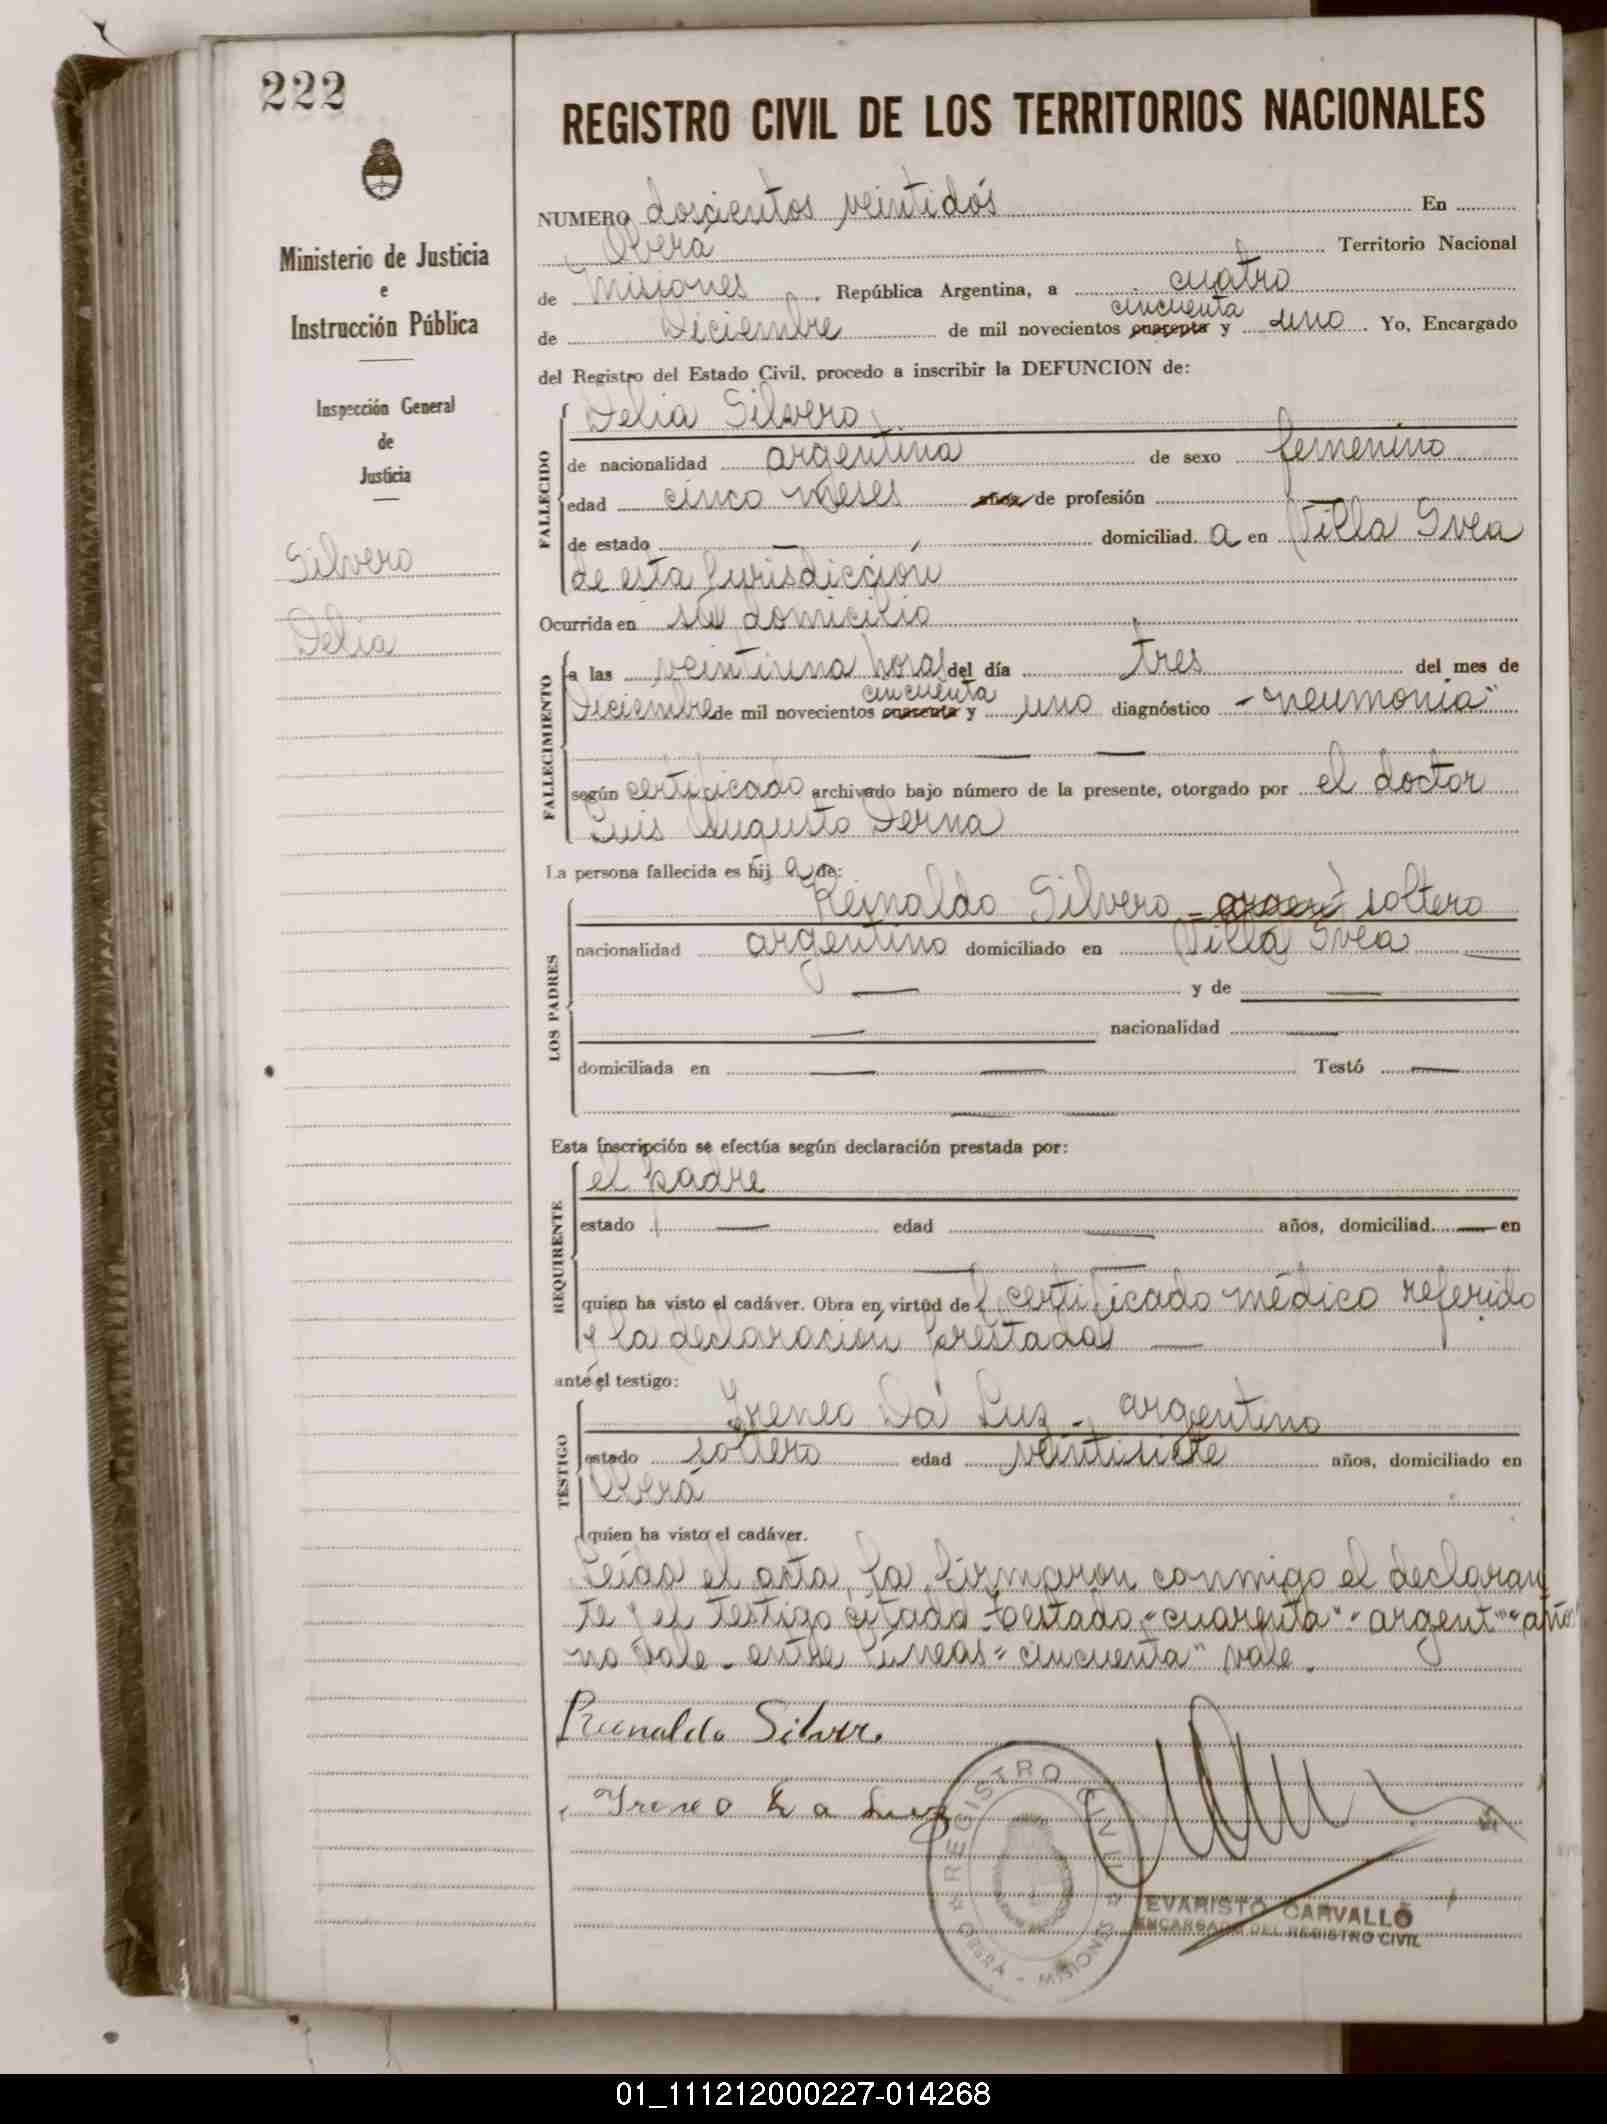 222
Ministerio de Justicia
e
Instrucción Pública
Inspección General
de
Justicia
Silvero
Delia
REGISTRO CIVIL DE LOS TERRITORIOS NACIONALES
NUMERO doscientos veintidós En
Oberá Territorio Nacional
de Misiones, República Argentina, a cuatro
cincuenta
de Diciembre de mil novecientos cuarenta y uno. Yo, Encargado
del Registro del Estado Civil, procedo a inscribir la DEFUNCION de:
FALLECIDO
Delia Silvero
de nacionalidad argentina de sexo femenino
edad cinco meses años de profesión
de estado — domiciliad. a en Villa Svea
de esta jurisdicción
Ocurrida en su domicilio
FALLECIMIENTO
a las veintiuna horas del día tres del mes de
cincuenta
Diciembre de mil novecientos cuarenta y uno diagnóstico - "neumonía"
según certificado archivado bajo número de la presente, otorgado por el doctor
Luis Augusto Derna
La persona fallecida es hij a de:
LOS PADRES
Reinaldo Silvero - argent soltero
nacionalidad argentino domiciliado en Villa Svea
— y de —
— nacionalidad —
domiciliada en — — Testó —
Esta inscripción se efectúa según declaración prestada por:
REQUIRENTE
el padre
estado — edad — años, domiciliad. — en
quien ha visto el cadáver. Obra en virtud del certificado médico referido
y la declaración prestada —
ante el testigo:
TESTIGO
Ireneo Da Luz - argentino
estado soltero edad veintisiete años, domiciliado en
Oberá
quien ha visto el cadáver.
Leída el acta, la firmaron conmigo el declaran
te y el testigo citado - testado "cuarenta" - argent" "año
no vale - entre líneas = cincuenta" vale.
Reinaldo Silver.
Ireneo Da Luz
REGISTRO CIVIL
OBERÁ - MISIONES
EVARISTO CARVALLO
ENCARGADO DEL REGISTRO CIVIL
01_111212000227-014268